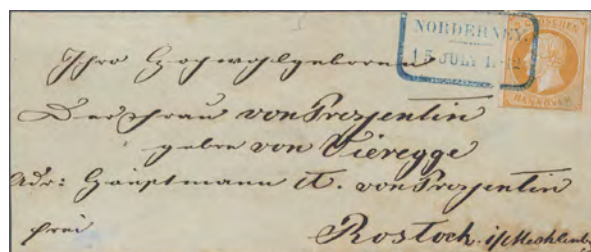 NORDERNEY
15 JULY
GROSCHEN
HANNOVER
Ihro Hochwohlgeboren
Der Frau von Prozentin
geborn von Vieregge
Adr: Hauptmann v. von Prozentin
frei
Rostock. i/Mecklenb